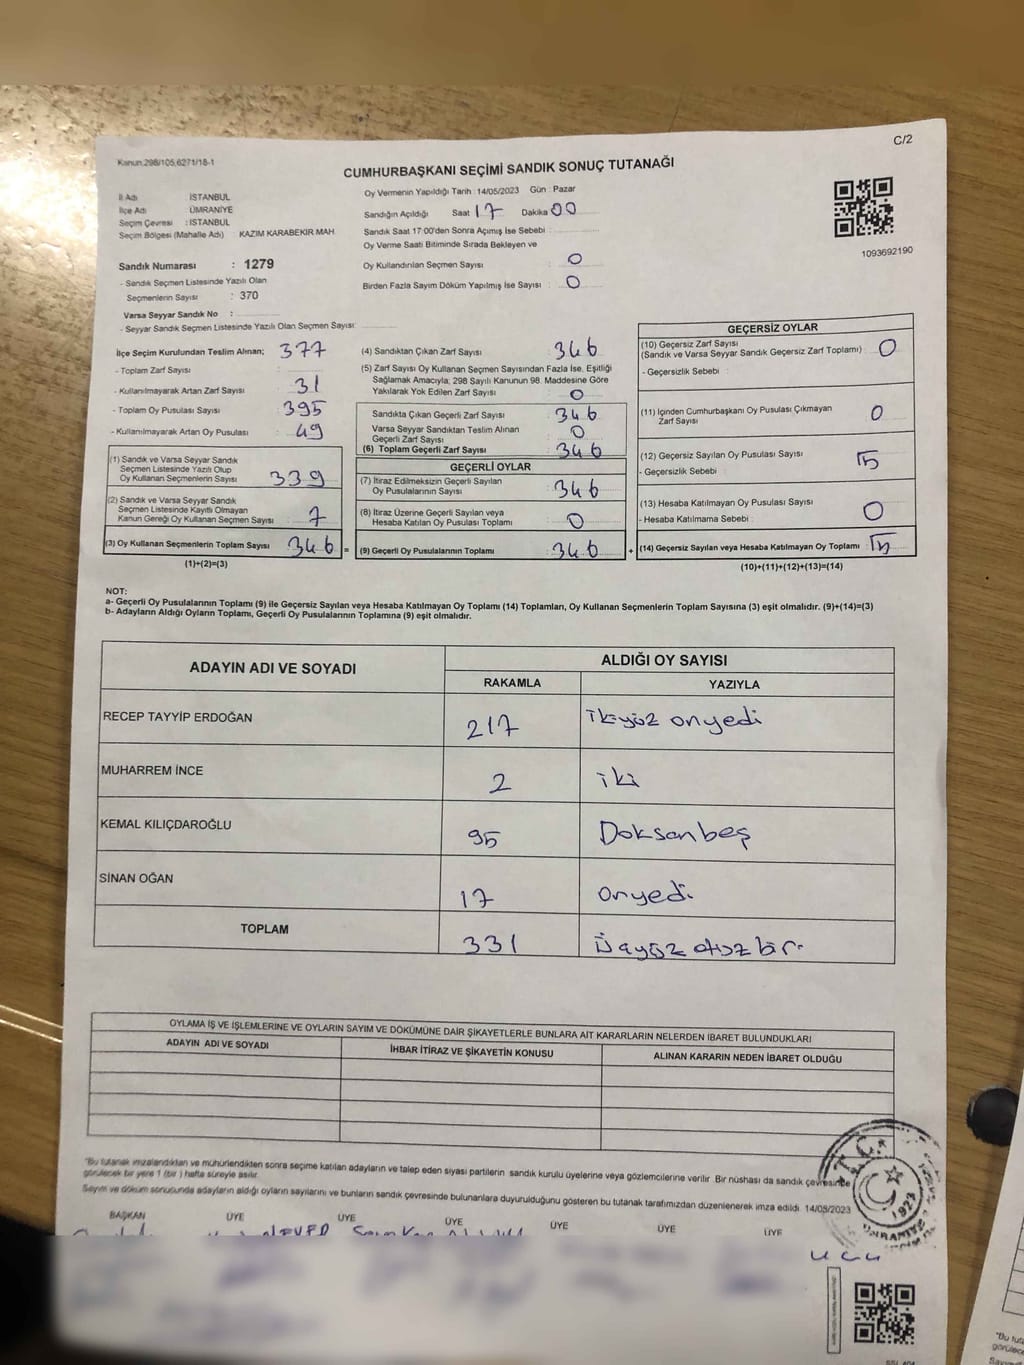 C/2
Kanun:298/105,6271/18-1
CUMHURBAŞKANI SEÇİMİ SANDIK SONUÇ TUTANAĞI
İl Adı İSTANBUL
İlçe Adı ÜMRANİYE
Seçim Çevresi : İSTANBUL
Seçim Bölgesi (Mahalle Adı) : KAZIM KARABEKİR MAH.
Sandık Numarası : 1279
- Sandık Seçmen Listesinde Yazılı Olan
Seçmenlerin Sayısı : 370
Varsa Seyyar Sandık No :
- Seyyar Sandık Seçmen Listesinde Yazılı Olan Seçmen Sayısı:
Oy Vermenin Yapıldığı Tarih : 14/05/2023 Gün : Pazar
Sandığın Açıldığı Saat 17 Dakika 00
Sandık Saat 17:00'den Sonra Açımış İse Sebebi :
Oy Verme Saati Bitiminde Sırada Bekleyen ve
Oy Kullandırılan Seçmen Sayısı : 0
Birden Fazla Sayım Döküm Yapılmış İse Sayısı : 0
1093692190
İlçe Seçim Kurulundan Teslim Alınan; 377
- Toplam Zarf Sayısı :
- Kullanılmayarak Artan Zarf Sayısı 31
- Toplam Oy Pusulası Sayısı : 395
- Kullanılmayarak Artan Oy Pusulası : 49
(1) Sandık ve Varsa Seyyar Sandık
Seçmen Listesinde Yazılı Olup
Oy Kullanan Seçmenlerin Sayısı 339
(2) Sandık ve Varsa Seyyar Sandık
Seçmen Listesinde Kayıtlı Olmayan
Kanun Gereği Oy Kullanan Seçmen Sayısı 7
(3) Oy Kullanan Seçmenlerin Toplam Sayısı 346 =
(1)+(2)=(3)
(4) Sandıktan Çıkan Zarf Sayısı 346
(5) Zarf Sayısı Oy Kullanan Seçmen Sayısından Fazla İse, Eşitliği
Sağlamak Amacıyla; 298 Sayılı Kanunun 98. Maddesine Göre
Yakılarak Yok Edilen Zarf Sayısı : 0
Sandıkta Çıkan Geçerli Zarf Sayısı : 346
Varsa Seyyar Sandıktan Teslim Alınan
Geçerli Zarf Sayısı 0
(6) Toplam Geçerli Zarf Sayısı 346
GEÇERLİ OYLAR
(7) İtiraz Edilmeksizin Geçerli Sayılan
Oy Pusulalarının Sayısı : 346
(8) İtiraz Üzerine Geçerli Sayılan veya
Hesaba Katılan Oy Pusulası Toplamı : 0
(9) Geçerli Oy Pusulalarının Toplamı : 346 +
GEÇERSİZ OYLAR
(10) Geçersiz Zarf Sayısı
(Sandık ve Varsa Seyyar Sandık Geçersiz Zarf Toplamı) : 0
- Geçersizlik Sebebi :
(11) İçinden Cumhurbaşkanı Oy Pusulası Çıkmayan
Zarf Sayısı 0
(12) Geçersiz Sayılan Oy Pusulası Sayısı : 15
- Geçersizlik Sebebi :
(13) Hesaba Katılmayan Oy Pusulası Sayısı : 0
- Hesaba Katılmama Sebebi :
(14) Geçersiz Sayılan veya Hesaba Katılmayan Oy Toplamı : 15
(10)+(11)+(12)+(13)=(14)
NOT:
a- Geçerli Oy Pusulalarının Toplamı (9) ile Geçersiz Sayılan veya Hesaba Katılmayan Oy Toplamı (14) Toplamları, Oy Kullanan Seçmenlerin Toplam Sayısına (3) eşit olmalıdır. (9)+(14)=(3)
b- Adayların Aldığı Oyların Toplamı, Geçerli Oy Pusulalarının Toplamına (9) eşit olmalıdır.
ADAYIN ADI VE SOYADI ALDIĞI OY SAYISI
RAKAMLA YAZIYLA
RECEP TAYYİP ERDOĞAN 217 ikiyüz onyedi
MUHARREM İNCE 2 iki
KEMAL KILIÇDAROĞLU 95 Doksanbeş
SİNAN OĞAN 17 onyedi
TOPLAM 331 Üçyüz otuzbir
OYLAMA İŞ VE İŞLEMLERİNE VE OYLARIN SAYIM VE DÖKÜMÜNE DAİR ŞİKAYETLERLE BUNLARA AİT KARARLARIN NELERDEN İBARET BULUNDUKLARI
ADAYIN ADI VE SOYADI İHBAR İTİRAZ VE ŞİKAYETİN KONUSU ALINAN KARARIN NEDEN İBARET OLDUĞU
"Bu tutanak imzalandıktan ve mühürlendikten sonra seçime katılan adayların ve talep eden siyasi partilerin sandık kurulu üyelerine veya gözlemcilerine verilir. Bir nüshası da sandık çevresinde
görülecek bir yere 1 (bir) hafta süreyle asılır.
Sayım ve döküm sonucunda adayların aldığı oyların sayılarını ve bunların sandık çevresinde bulunanlara duyurulduğunu gösteren bu tutanak tarafımızdan düzenlenerek imza edildi. 14/05/2023
BAŞKAN ÜYE ÜYE ÜYE ÜYE ÜYE ÜYE
T.C.
1923
ÜMRANİYE
"Bu tuta
görülec